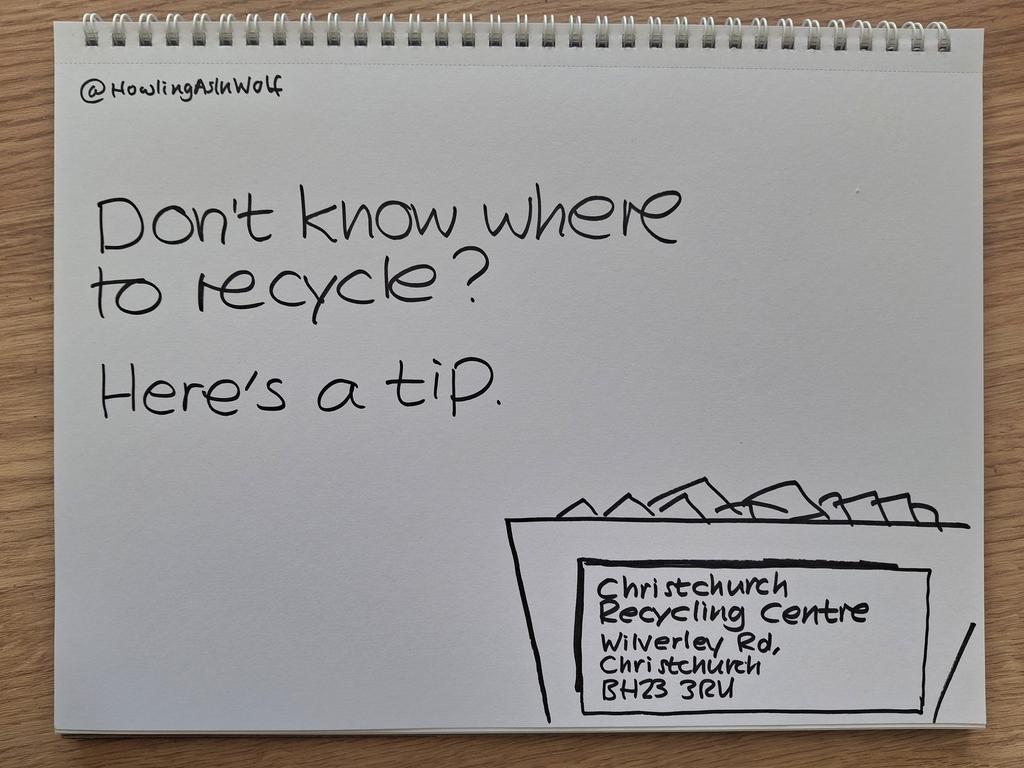 @HowlingAsInWolf
Don't know where
to recycle?
Here's a tip.
Christchurch
Recycling Centre
Wilverley Rd,
Christchurch
BH23 3RU